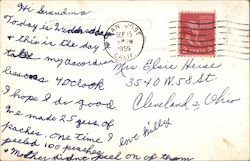 Hi Grandma
Today is Wednesday
& this is the day
take my accordion
lessons 4 Oclock
I hope I do good
We made 25 jars of
peaches. One time I
peeled 100 peaches
& Mother didnt peel on of them
love Billy
SAN JOSE
SEP 15
PM
1955
CALIF.
Mrs Elsie
3540 W. 58 St.
Cleveland 2 Ohio